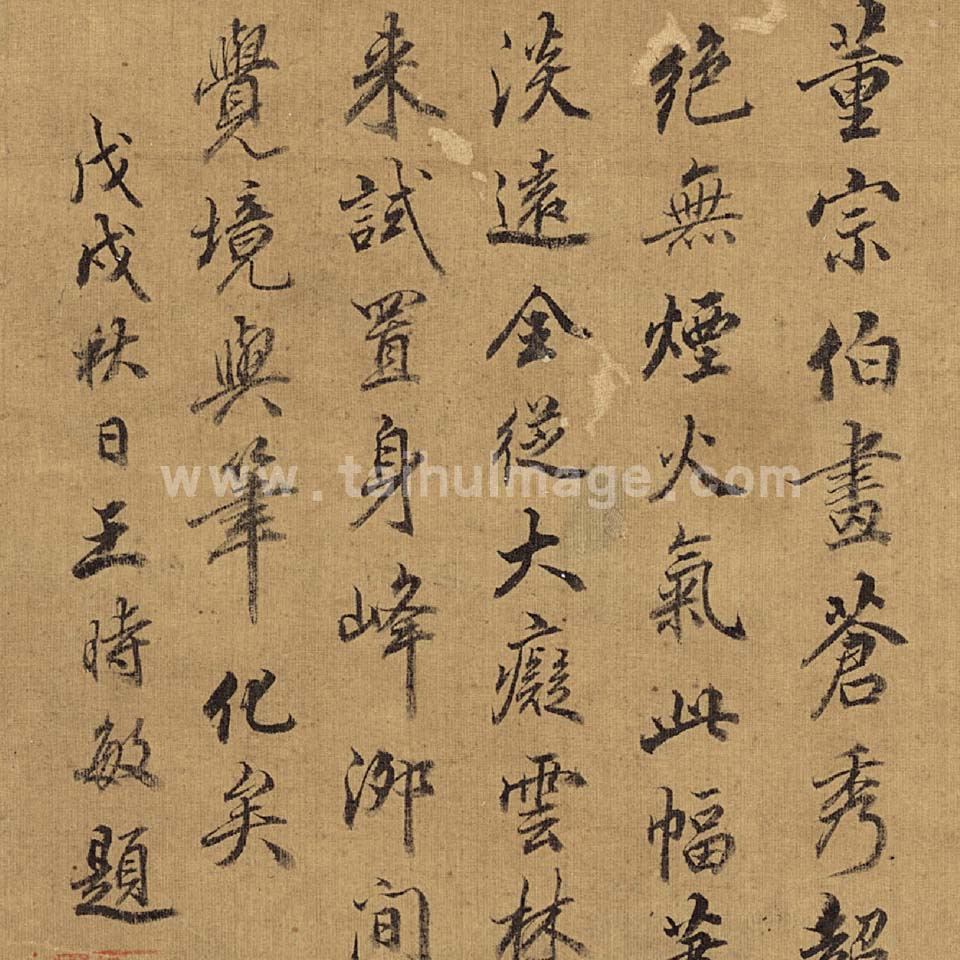 董宗伯畫蒼秀超
絕無煙火氣此幅蕭
淡遠全從大癡雲林
来試置身峰泖間
覺境與筆化矣
戊戌秋日王時敏題
www.taihuimage.com